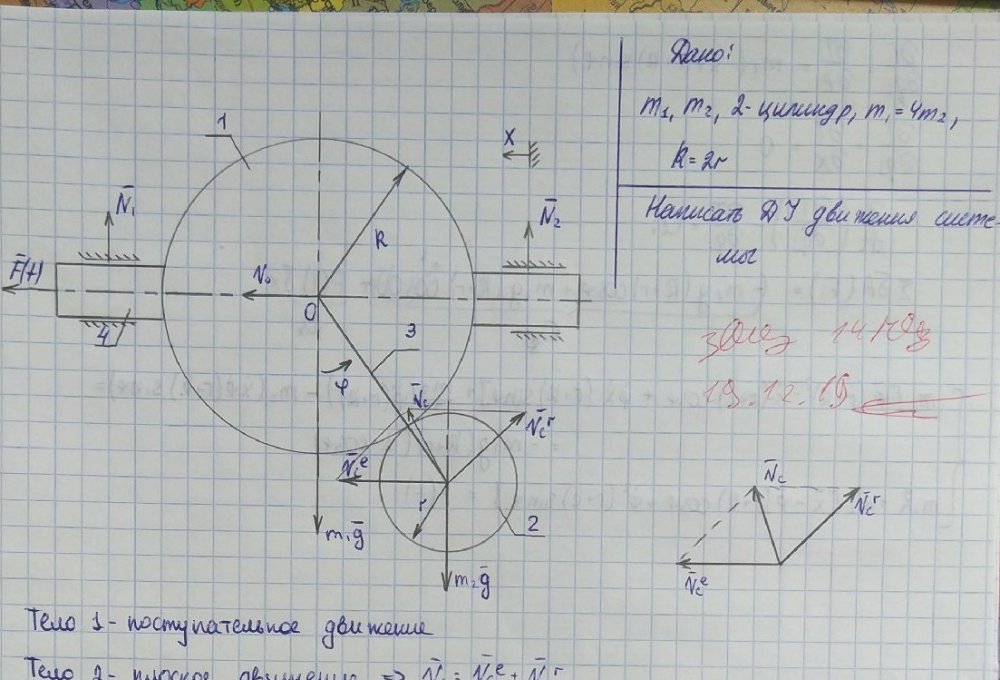 Дано:
m₁, m₂, 2-цилиндр, m₁ = 4m₂,
R = 2r
Написать ДУ движения систе-
мы
1
X
N̄₁
N̄₂
R
F̄(t)
V₀
O
4
3
φ
V̄c
V̄cʳ
V̄cᵉ
r
2
m₁ḡ
m₂ḡ
19.12.19
V̄c
V̄cʳ
V̄cᵉ
Тело 1 - поступательное движение
Тело 2 - плоское движение => V̄c = V̄cᵉ + V̄cʳ